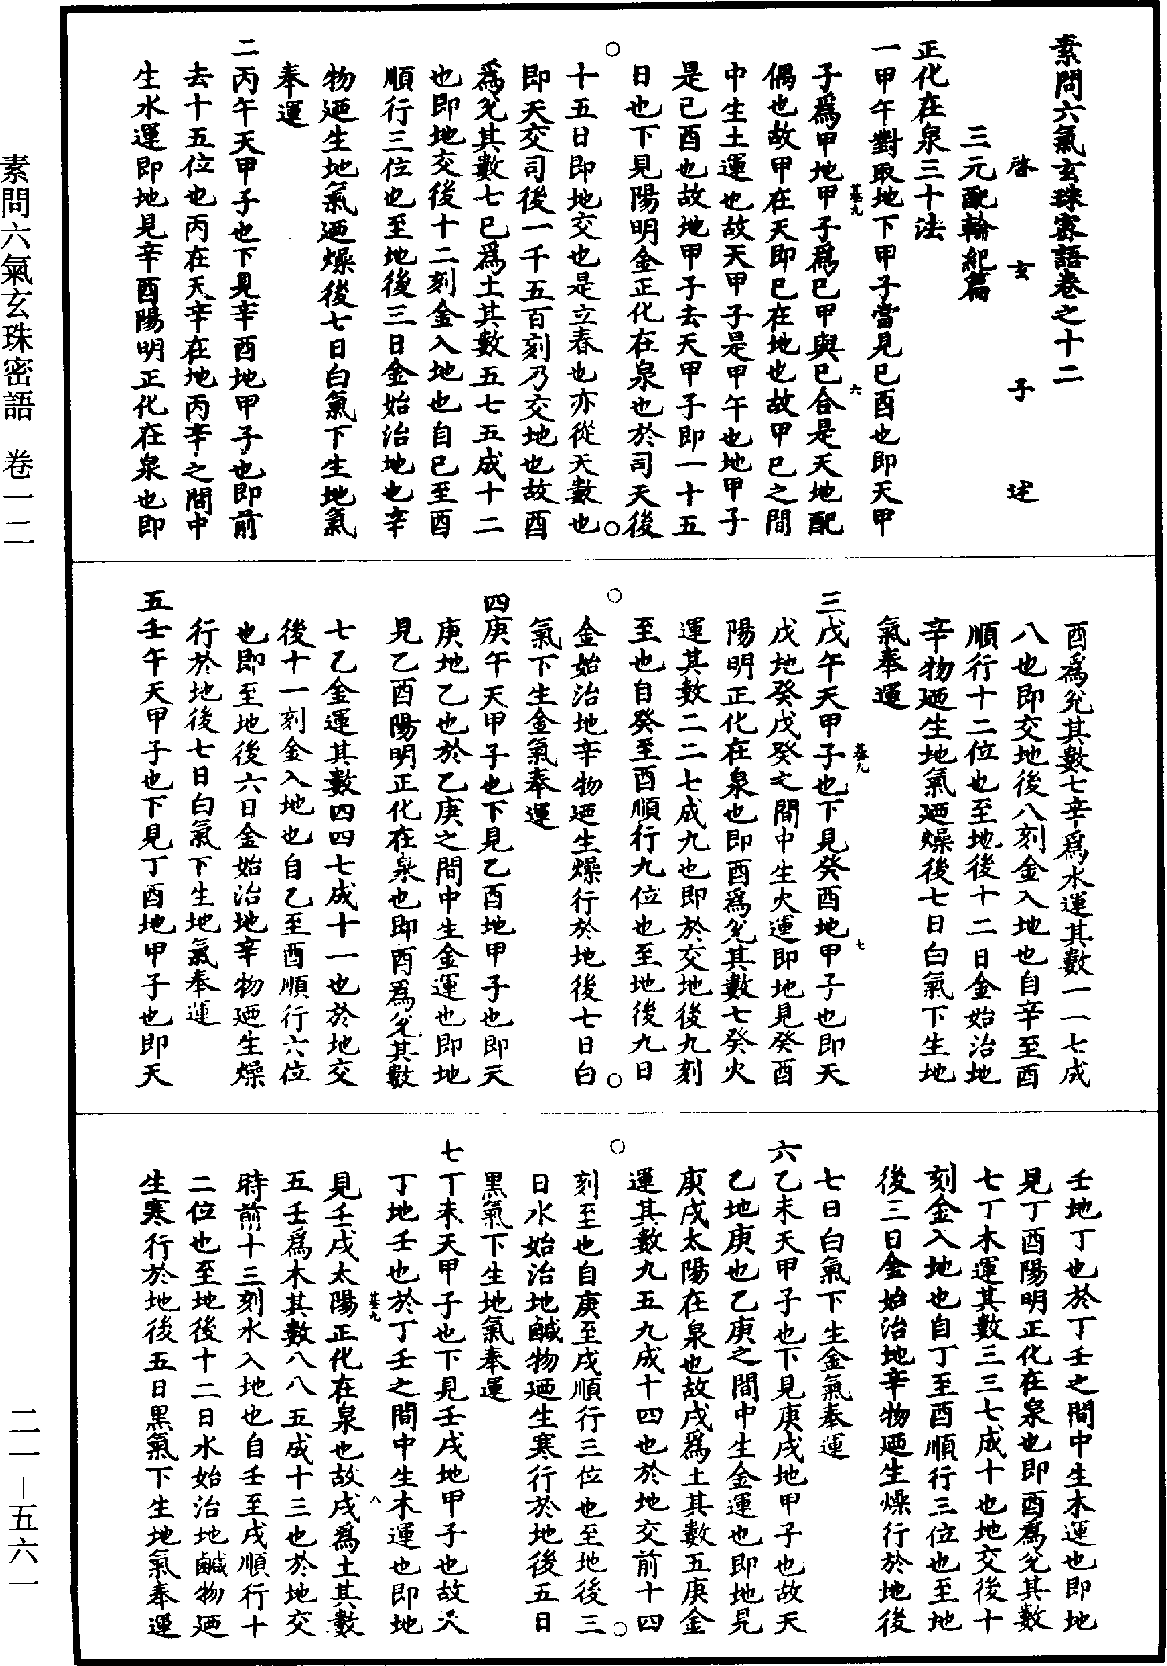 素問六氣玄珠密語卷之十二
啓玄子述
三元配輪紀篇
正化在泉三十法
一甲午對取地下甲子當見己酉也即天甲
子爲甲地甲子爲己甲與己合是天地配
偶也故甲在天即己在地也故甲己之間
中生土運也故天甲子是甲午也地甲子
是己酉也故地甲子去天甲子即一十五
日也下見陽明金正化在泉也於司天後
十五日即地交也是立春也亦從天數也
即天交司後一千五百刻乃交地也故酉
爲兌其數七己爲土其數五七五成十二
也即地交後十二刻金入地也自己至酉
順行三位也至地後三日金始治地也辛
物廼生地氣廼燥後七日白氣下生地氣
奉運
二丙午天甲子也下見辛酉地甲子也即前
去十五位也丙在天辛在地丙辛之間中
生水運即地見辛酉陽明正化在泉也即
酉爲兌其數七辛爲水運其數一一七成
八也即交地後八刻金入地也自辛至酉
順行十二位也至地後十二日金始治地
辛物廼生地氣廼燥後七日白氣下生地
氣奉運
三戊午天甲子也下見癸酉地甲子也即天
戊地癸戊癸之間中生火運即地見癸酉
陽明正化在泉也即酉爲兌其數七癸火
運其數二二七成九也即於交地後九刻
至也自癸至酉順行九位也至地後九日
金始治地辛物廼生燥行於地後七日白
氣下生金氣奉運
四庚午天甲子也下見乙酉地甲子也即天
庚地乙也於乙庚之間中生金運也即地
見乙酉陽明正化在泉也即酉爲兌其數
七乙金運其數四四七成十一也於地交
後十一刻金入地也自乙至酉順行六位
也即至地後六日金始治地辛物廼生燥
行於地後七日白氣下生地氣奉運
五壬午天甲子也下見丁酉地甲子也即天
壬地丁也於丁壬之間中生木運也即地
見丁酉陽明正化在泉也即酉爲兌其數
七丁木運其數三三七成十也地交後十
刻金入地也自丁至酉順行三位也至地
後三日金始治地辛物廼生燥行於地後
七日白氣下生金氣奉運
六乙未天甲子也下見庚戌地甲子也故天
乙地庚也乙庚之間中生金運也即地見
庚戌太陽在泉也故戌爲土其數五庚金
運其數九五九成十四也於地交前十四
刻至也自庚至戌順行三位也至地後三
日水始治地鹹物廼生寒行於地後五日
黑氣下生地氣奉運
七丁未天甲子也下見壬戌地甲子也故天
丁地壬也於丁壬之間中生木運也即地
見壬戌太陽正化在泉也故戌爲土其數
五壬爲木其數八八五成十三也於地交
時前十三刻水入地也自壬至戌順行十
二位也至地後十二日水始治地鹹物廼
生寒行於地後五日黑氣下生地氣奉運
素問六氣玄珠密語 卷一二
二一—五六一